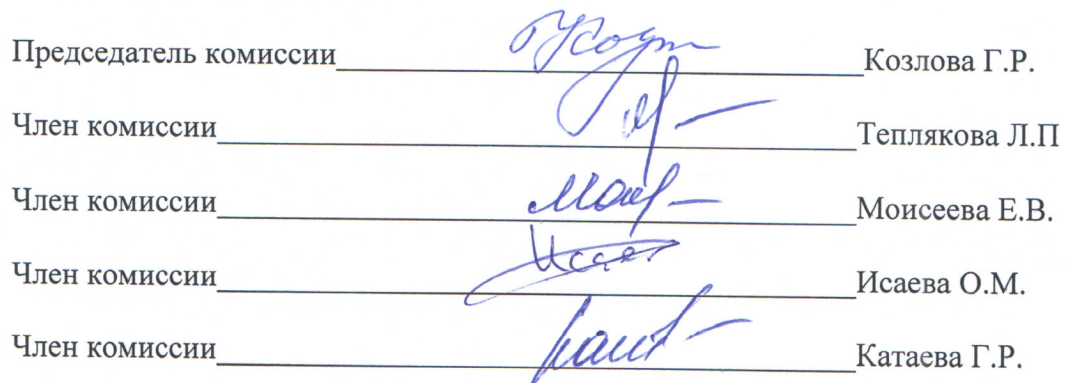 Председатель комиссии Козлова Г.Р.
Член комиссии Теплякова Л.П
Член комиссии Моисеева Е.В.
Член комиссии Исаева О.М.
Член комиссии Катаева Г.Р.